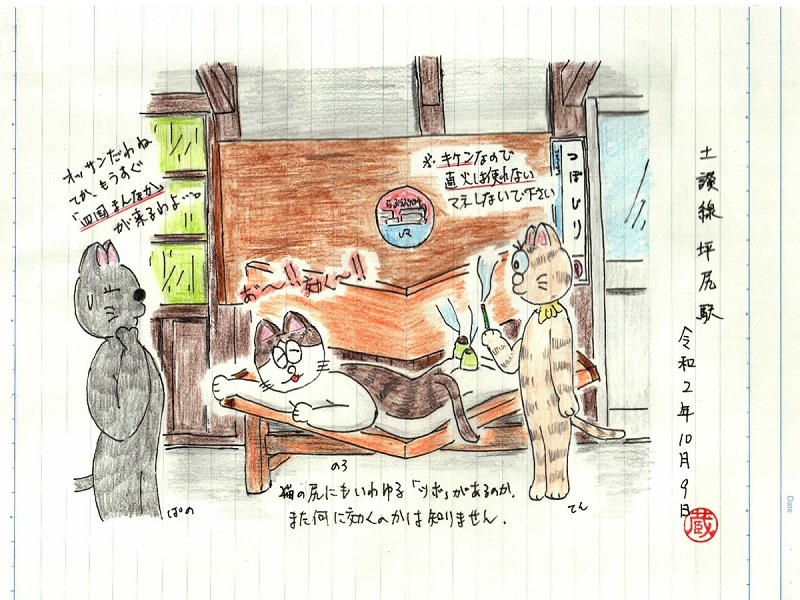 土讃線 坪尻駅
令和2年10月9日
蔵
オッサンだわね
てか、もうすぐ
「四国まんなか」
が来るわよ…。
※キケンなので
直火は使わない
マネしないで下さい
つぼじり
お〜!!効く〜!!
JR
のろ
ぱの
てん
猫の尻にもいわゆる「ツボ」があるのか、
また何に効くのかは知りません.
Date